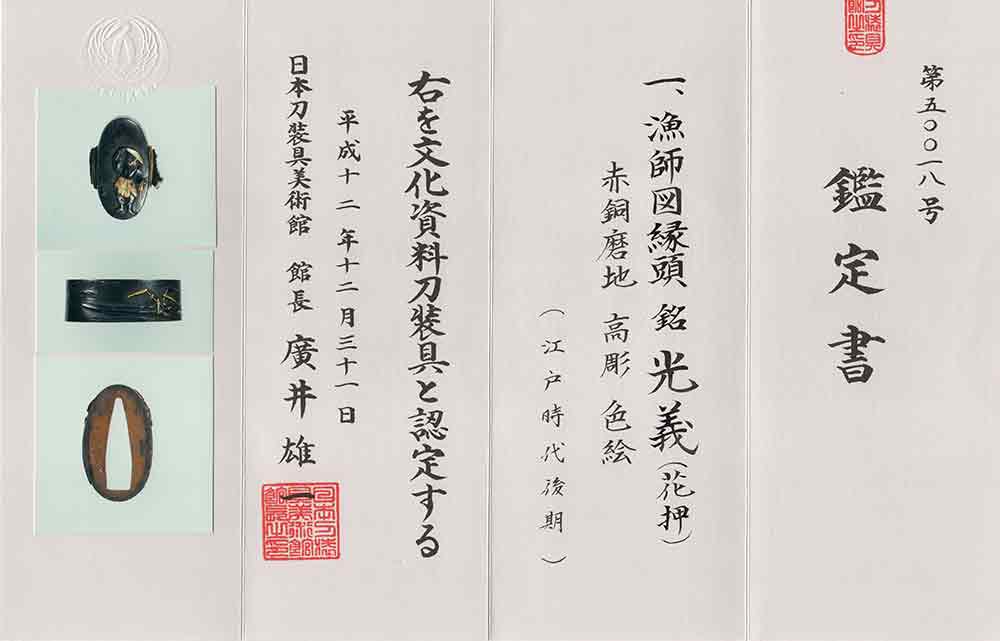 第五〇〇一八号
鑑定書
一、漁師図縁頭 銘 光義(花押)
赤銅磨地 高彫 色絵
(江戸時代後期)
右を文化資料刀装具と認定する
平成十二年十二月三十一日
日本刀装具美術館 館長 廣井雄一